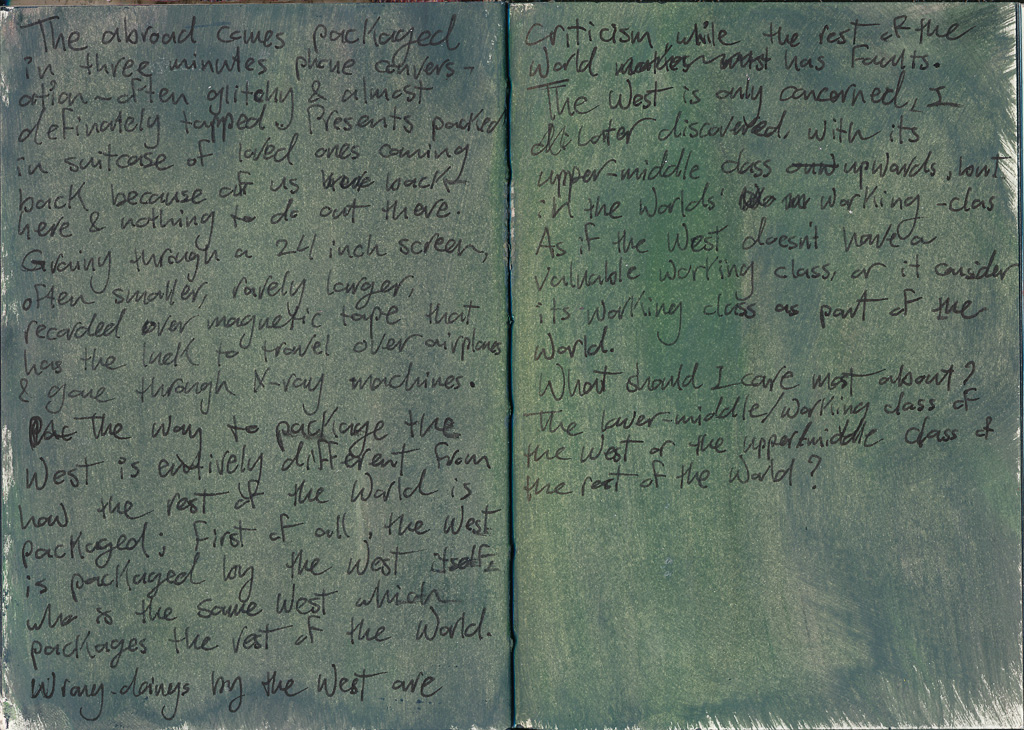 The abroad comes packaged
in three minutes phone convers-
ation - often glitchy & almost
definately tapped. Presents packed
in suitcase of loved ones coming
back because of us back
here & nothing to do out there.
Grainy through a 24 inch screen,
often smaller, rarely larger,
recorded over magnetic tape that
has the luck to travel over airplanes
& gone through X-ray machines.
The way to package the
West is entirely different from
how the rest of the World is
packaged; First of all, the West
is packaged by the West itself,
who is the same West which
packages the rest of the World.
Wrong-doings by the West are
Criticism, while the rest of the
World has Faults.
The West is only concerned, I
later discovered, with its
upper-middle class upwards, but
in the Worlds' working-class
As if the West doesn't have a
valuable working class, or it consider
its working class as part of the
World.
What should I care most about?
The lower-middle/working class of
the West or the upper-middle class of
the rest of the World?